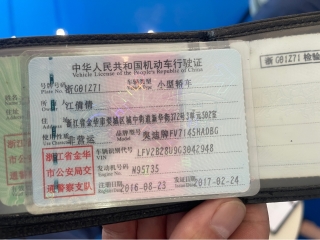 中华人民共和国机动车行驶证
Vehicle License of the People's Republic of China
号牌号码 浙G01Z71 小型轿车
Plate No.
所有人 江倩倩
Owner
住址 浙江省金华市婺城区城中街道
Address
使用性质 非营运 品牌型号 奥迪牌FV7145HADBG
Use Character Model
浙江省金华市公安局交通警察支队
车辆识别代号 LFV2B28U9G3042948
VIN
发动机号码 W95735
Engine No.
注册日期 2016-08-23 发证日期 2017-02-24
Register Date Issue Date
浙G01Z71 检验